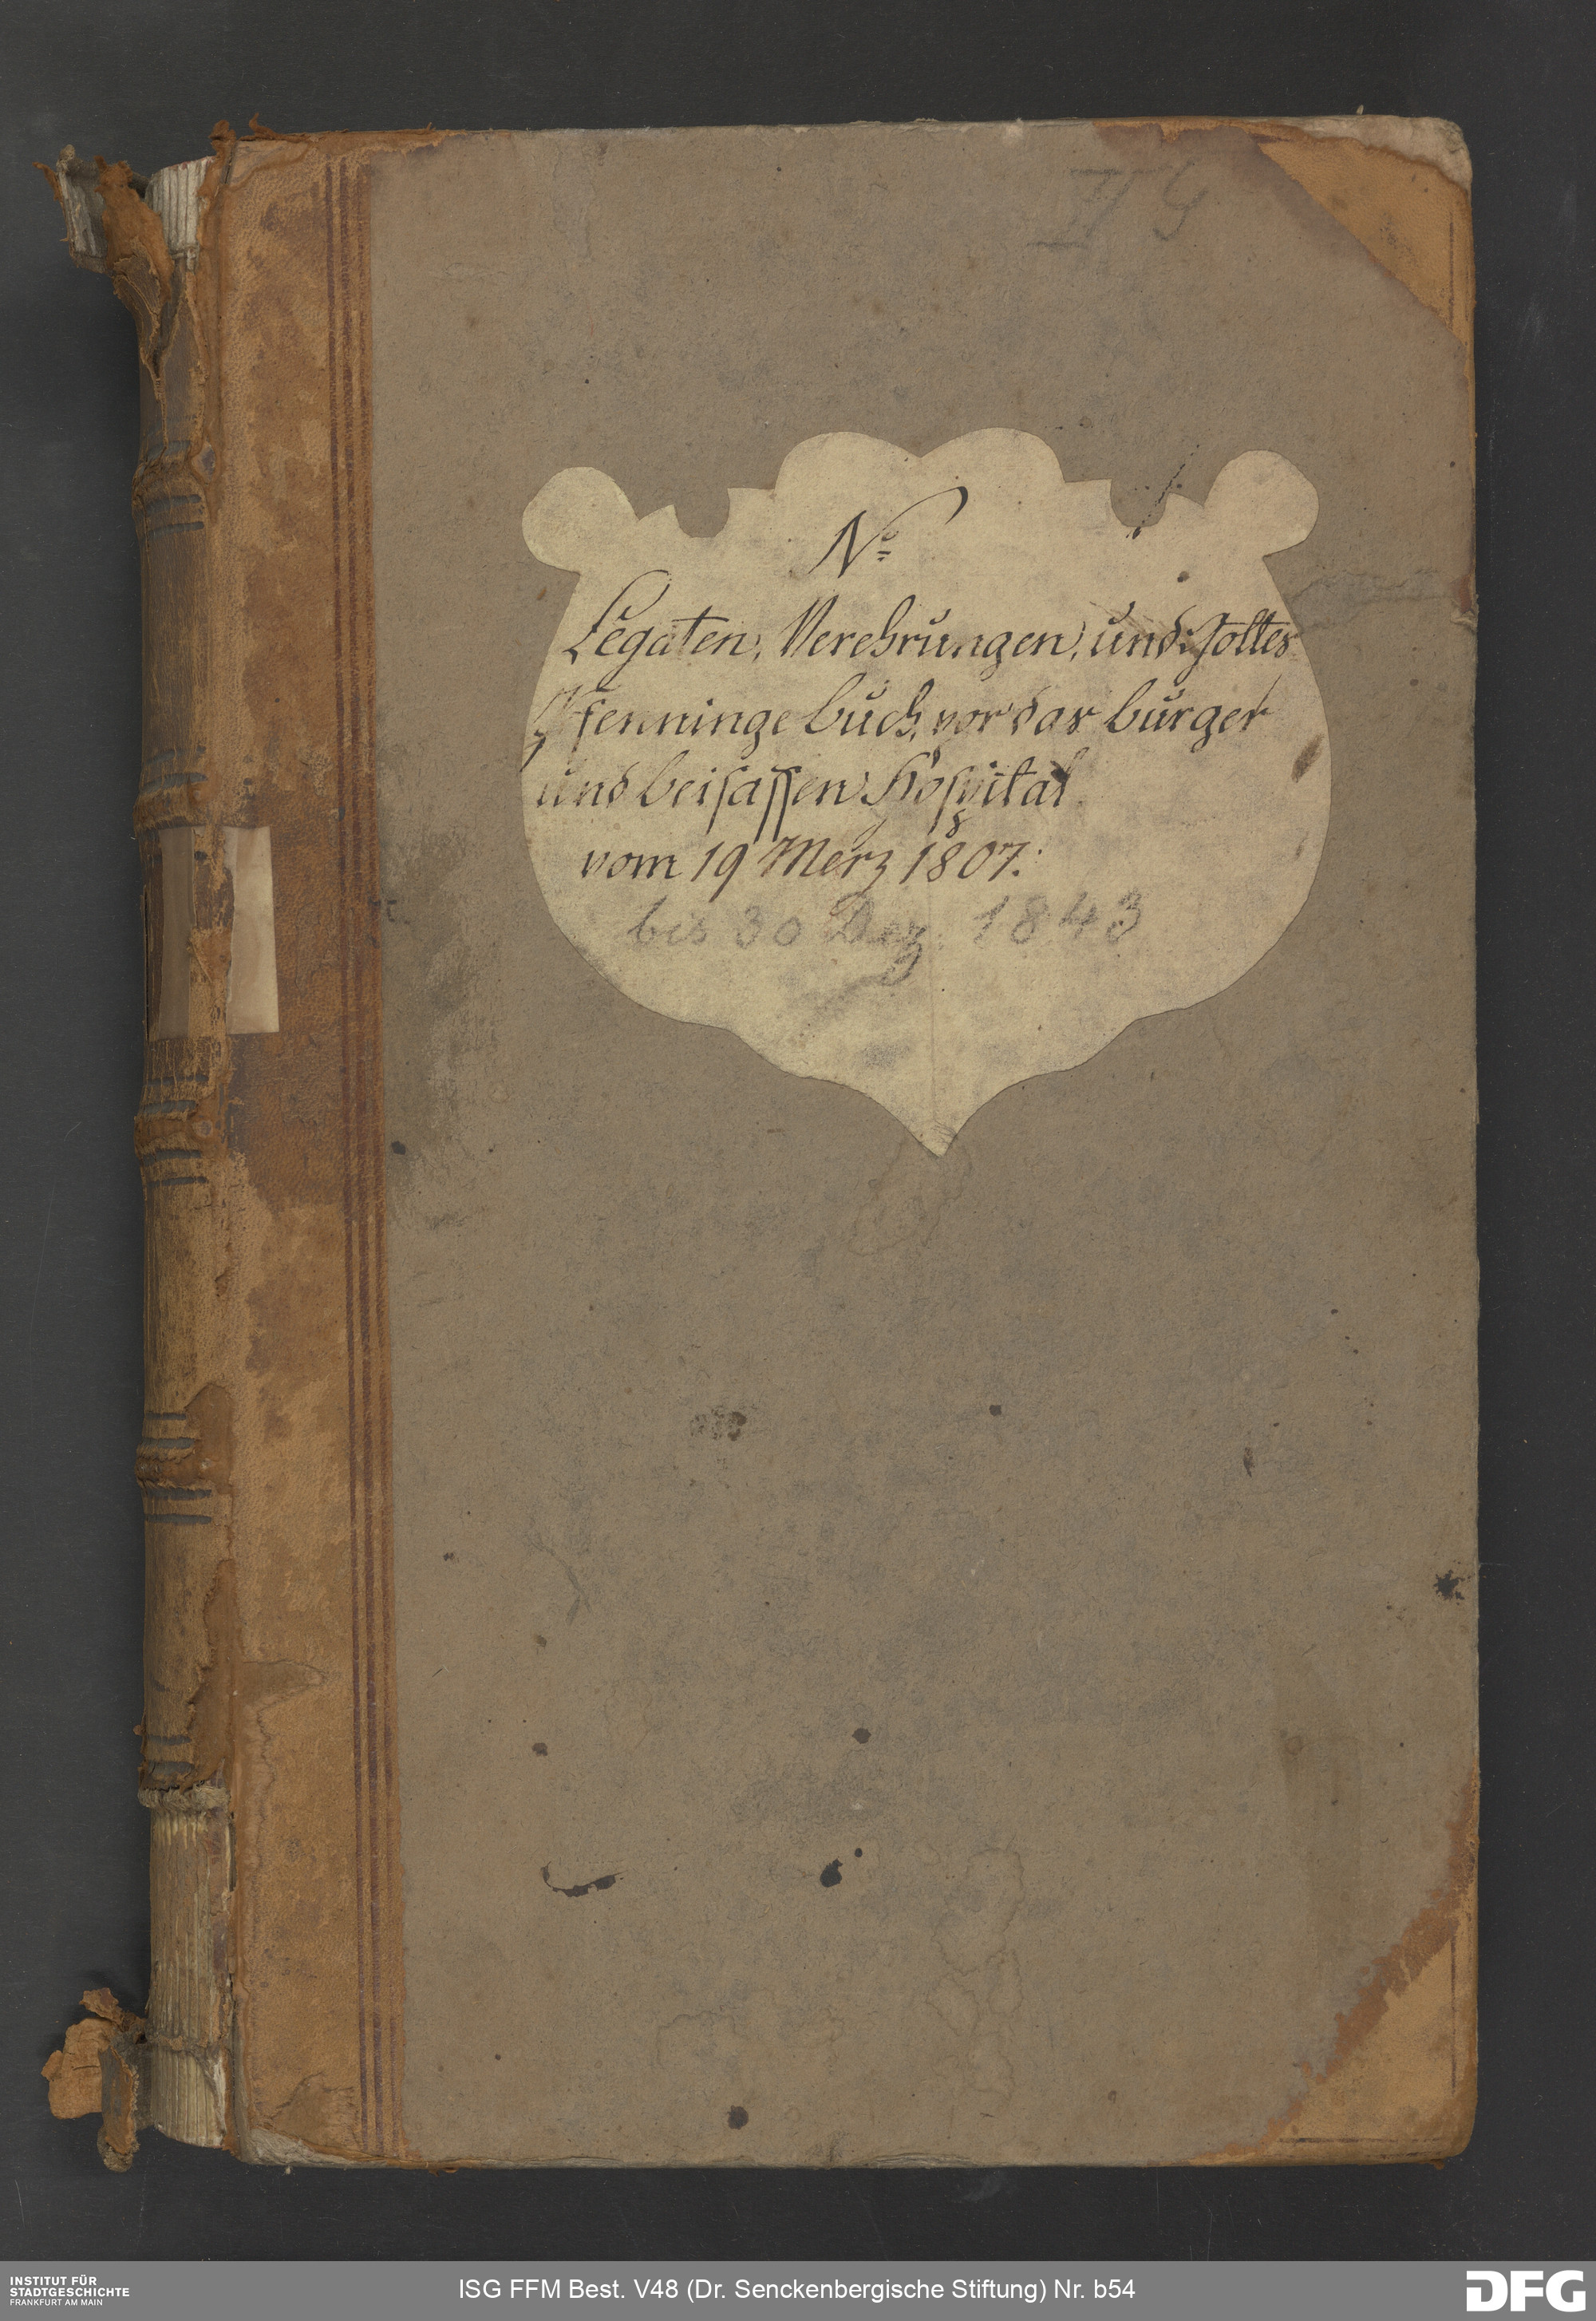 II 9
No
Legaten, Verehrungen, und Gottes
Pfenninge buch, vor das burger
und beisassen Hospital
vom 19 Merz 1807.
bis 30 Dez. 1843
INSTITUT FÜR
STADTGESCHICHTE
FRANKFURT AM MAIN
ISG FFM Best. V48 (Dr. Senckenbergische Stiftung) Nr. b54
DFG